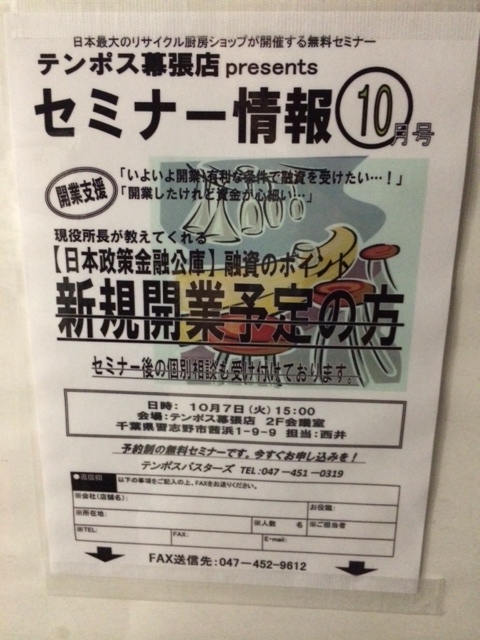 日本最大のリサイクル厨房ショップが開催する無料セミナー
テンポス幕張店 presents
セミナー情報 10月号
開業支援
「いよいよ開業!有利な条件で融資を受けたい…!」
「開業したけれど資金が心細い…」
現役所長が教えてくれる
【日本政策金融公庫】融資のポイント
新規開業予定の方
セミナー後の個別相談も受け付けております。
日時: 10月7日(火)15:00
会場:テンポス幕張店 2F会議室
千葉県習志野市茜浜1-9-9 担当:西井
予約制の無料セミナーです。今すぐお申し込みを!
テンポスバスターズ TEL:047-451-0319
●返信欄 以下の事項をご記入の上、FAXをお送りください。
※会社(店舗名): お役職:
※所在地: ※人数 名 ※ご担当者
※TEL: FAX: E-mail:
FAX送信先:047-452-9612